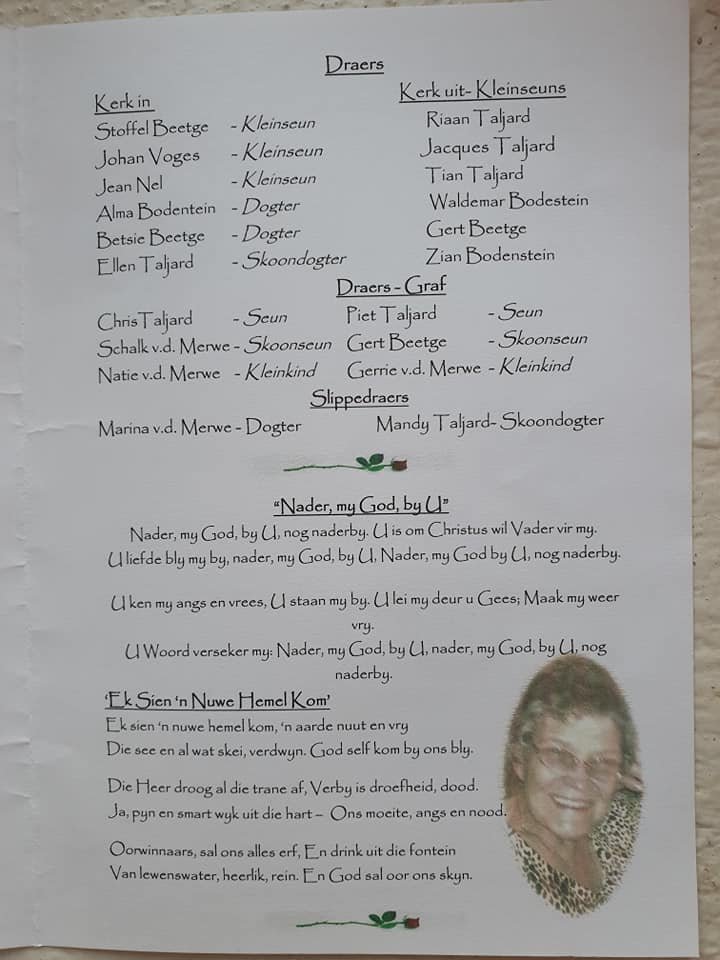 Draers
Kerk in
Kerk uit- Kleinseuns
Stoffel Beetge - Kleinseun
Riaan Taljard
Johan Voges - Kleinseun
Jacques Taljard
Jean Nel - Kleinseun
Tian Taljard
Alma Bodentein - Dogter
Waldemar Bodestein
Betsie Beetge - Dogter
Gert Beetge
Ellen Taljard - Skoondogter
Zian Bodenstein
Draers - Graf
ChrisTaljard - Seun Piet Taljard - Seun
Schalk v.d. Merwe - Skoonseun Gert Beetge - Skoonseun
Natie v.d. Merwe - Kleinkind Gerrie v.d. Merwe - Kleinkind
Slippedraers
Marina v.d. Merwe - Dogter Mandy Taljard- Skoondogter
“Nader, my God, by U”
Nader, my God, by U, nog naderby. U is om Christus wil Vader vir my.
U liefde bly my by, nader, my God, by U, Nader, my God by U, nog naderby.
U ken my angs en vrees, U staan my by. U lei my deur u Gees; Maak my weer
vry.
U Woord verseker my: Nader, my God, by U, nader, my God, by U, nog
naderby.
‘Ek Sien ‘n Nuwe Hemel Kom’
Ek sien ‘n nuwe hemel kom, ‘n aarde nuut en vry
Die see en al wat skei, verdwyn. God self kom by ons bly.
Die Heer droog al die trane af, Verby is droefheid, dood.
Ja, pyn en smart wyk uit die hart – Ons moeite, angs en nood.
Oorwinnaars, sal ons alles erf, En drink uit die fontein
Van lewenswater, heerlik, rein. En God sal oor ons skyn.